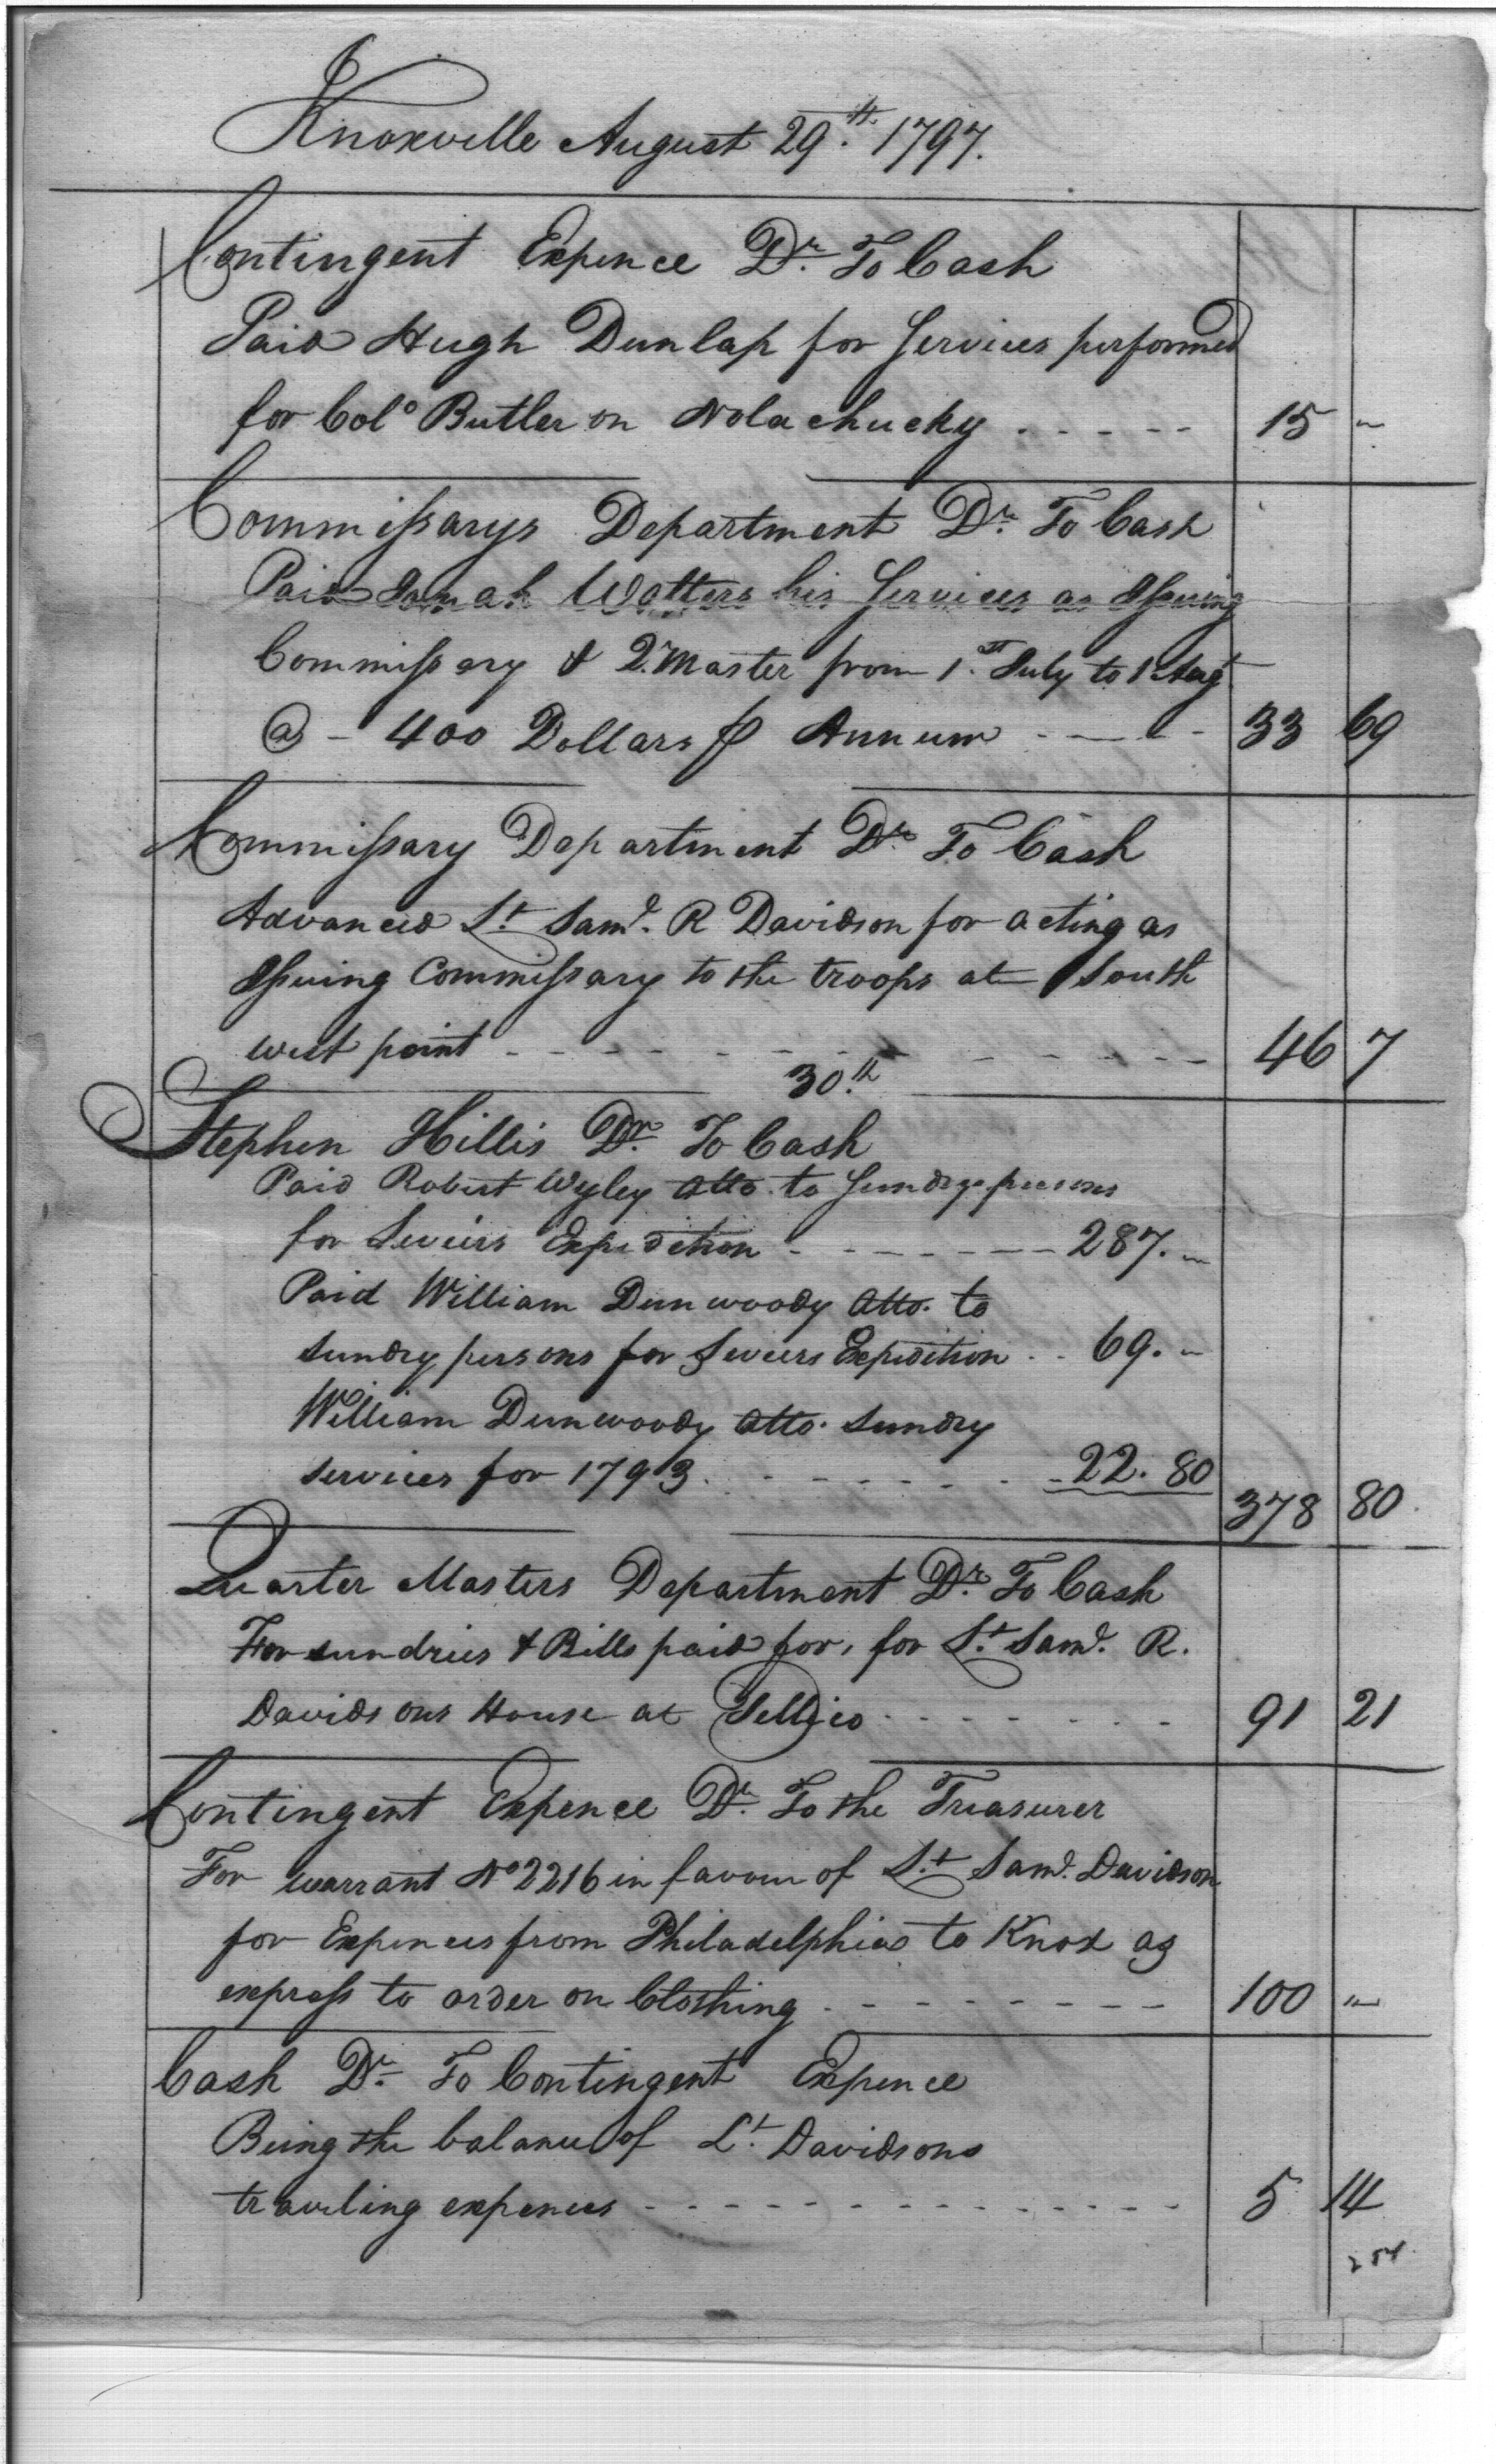 Knoxville August 29.th 1797.
Contingent Expence Dr. To Cash
Paid Hugh Dunlap for Services performed
for Colo Butler on Nolachucky - - - - - 15 "
Commissarys Department Dr. To Cash
Paid Watters his Services as Issuing
Commissary & Q.Master from 1.st July to 1 Augt
@ - 400 Dollars ₱ Annum - - - - 33 69
Commissary Department Dr. To Cash
Advanced Lt. Saml. R Davidson for acting as
Issuing Commissary to the troops at South
west point - - - - - - - - - - - 46 7
30.th
Stephen Hillis Dr. To Cash
Paid Robert Wyley Atto. to Sundry persons
for Seveirs Expedition - - - - - - - 287. "
Paid William Dunwoody Atto. to
sundry persons for Seveers Expedition - - 69. "
William Dunwoody Atto. sundry
services for 1793. - - - - - - - 22. 80
378 80
Quarter Masters Department Dr. To Cash
For sundries & Bills paid for, for Lt. Saml. R.
Davidsons House at Tellico - - - - - - - 91 21
Contingent Expence Dr. To the Treasurer
For warrant No 2216 in favour of Lt. Saml. Davidson
for Expences from Philadelphia to Knox as
express to order on Clothing - - - - - - - - 100 "
Cash Dr. To Contingent Expence
Being the balance of Lt. Davidsons
traveling expences - - - - - - - - - - - - - - 5 14